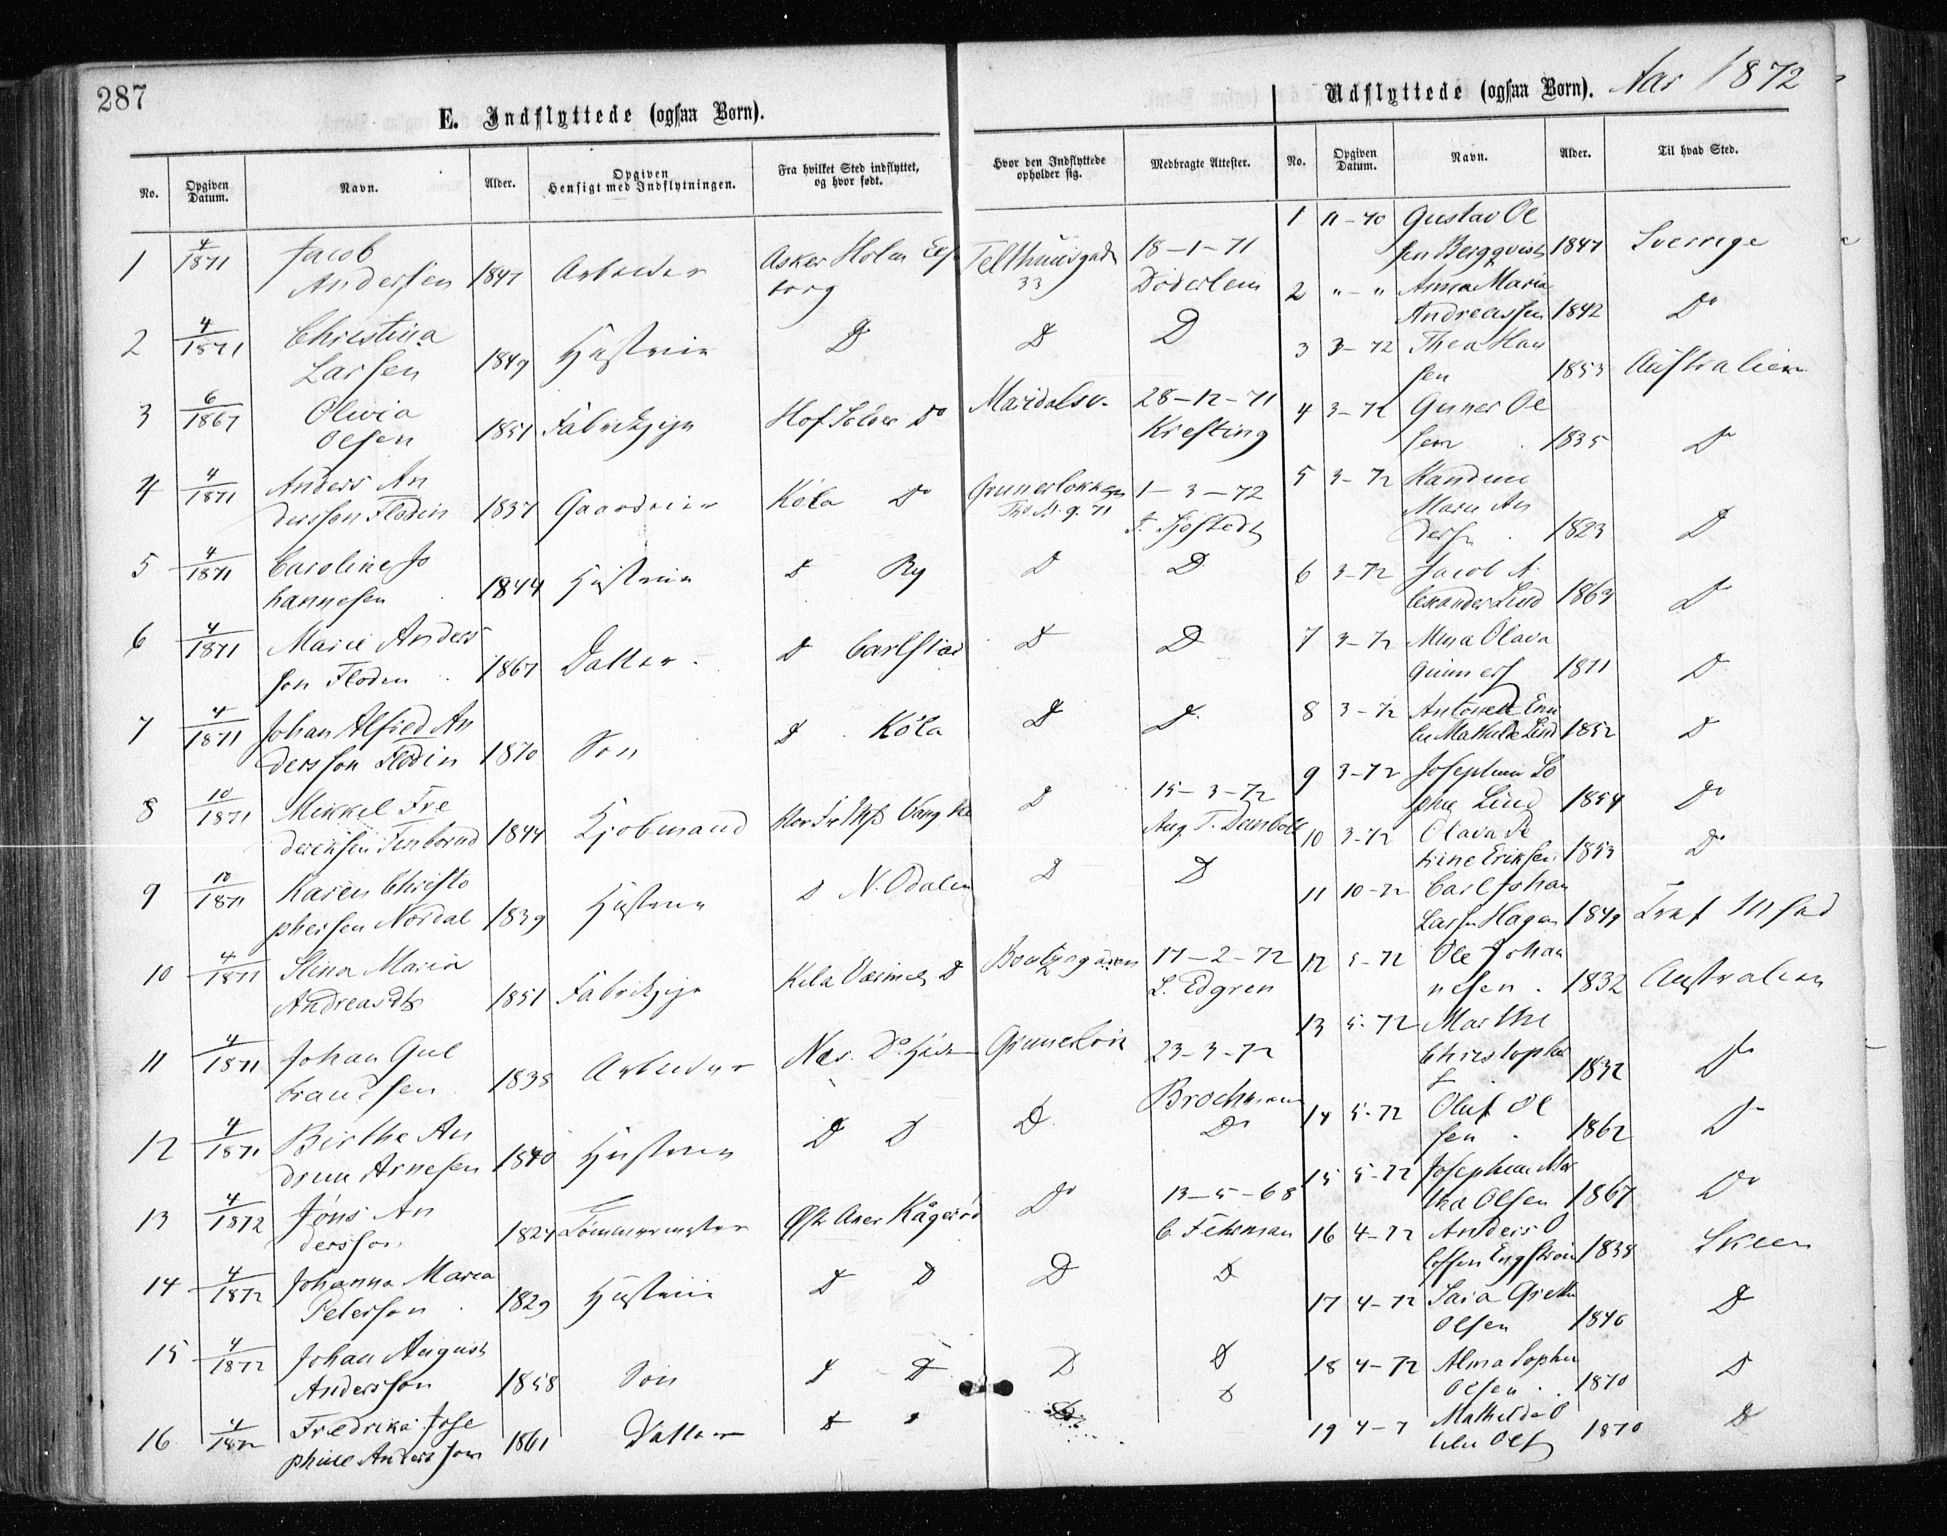 287
E. Indflyttede (ogsaa Børn).
Udflyttede (ogsaa Børn). Aar 1872
No. Opgiven Datum. Navn. Alder. Opgiven Hensigt med Indflytningen. Fra hvilket Sted indflyttet, og hvor født. Hvor den Indflyttede opholder sig. Medbragte Attester.
1 4/1871 Jacob Andersen 1847 Arbeider Asker Holm Telthusgade 33 18-1-71 Döderlein
2 4/1871 Christina Larsen 1849 Hustrue D D D
3 6/1867 Olivia Olsen 1851 Fabrikpige Hof Solør Do Maridalsv. 28-12-71 Krefting
4 4/1871 Anders Andersson Flodin 1837 Gaardeier Köla Do Grunerløkken 1-3-72
5 4/1871 Caroline Johannesen 1844 Hustrue D Ry D D
6 4/1871 Marie Andersson Floden 1867 Datter D Carlstad D D
7 4/1871 Johan Alfred Andersson Flodin 1870 Son D Köla D D
8 10/1871 Mikkel Frederiksen 1844 Kjøbmand D 15-3-72
9 10/1871 Karen Christophersen Nordal 1839 Hustrue D N. Odalen D D
10 4/1871 Stina Maria Andreasdtr 1851 Fabrikpige D 17-2-72 L. Edgren
11 4/1871 Johan Gulbrandsen 1838 Arbeider Næs. Do 23-3-72 Brochmann
12 4/1871 Birthe Andrea Arnesen 1840 Hustrue D D D Do
13 4/1872 Jöns Andersson 1824 Tømmermester Kågeröd Do 13-5-68 C. Fehrman
14 4/1872 Johanna Maria Peterson 1829 Hustrue D D D D
15 4/1872 Johan August Andersson 1858 Son D D D D
16 4/1872 Fredrika Josephine Andersson 1861 Datter D D
No. Opgiven Datum. Navn. Alder. Til hvad Sted.
1 11-70 Gustav Olsen Bergqvist 1847 Sverrige
2 "-" Anna Maria Andreassen 1842 Do
3 3-72 Thea Hansen 1853 Australien
4 3-72 Gunner Olsen 1835 D
5 3-72 Marie Anders 1823 D
6 3-72 Jacob Alexander Lind 1863 D
7 3-72 Mina Olava Gunners 1871 D
8 3-72 Mathilde Lind 1852 D
9 3-72 Josephine Sophie Lind 1854 Do
10 3-72 Olava Petrine Eriksen 1853 Do
11 10-72 Carl Johan Larsen Hagen 1849
12 5-72 Ole Johannesen 1832 Australien
13 5-72 Marthe Christophers 1832 D
14 5-72 Oluf Olsen 1862 D
15 5-72 Josephine Olsen 1867 Do
16 4-72 Anders Engström 1838 Skeen
17 4-72 Sara Grethe Olsen 1840 D
18 4-72 Alma Sophie Olsen 1870 D
19 4-7 Mathilde 1870 D